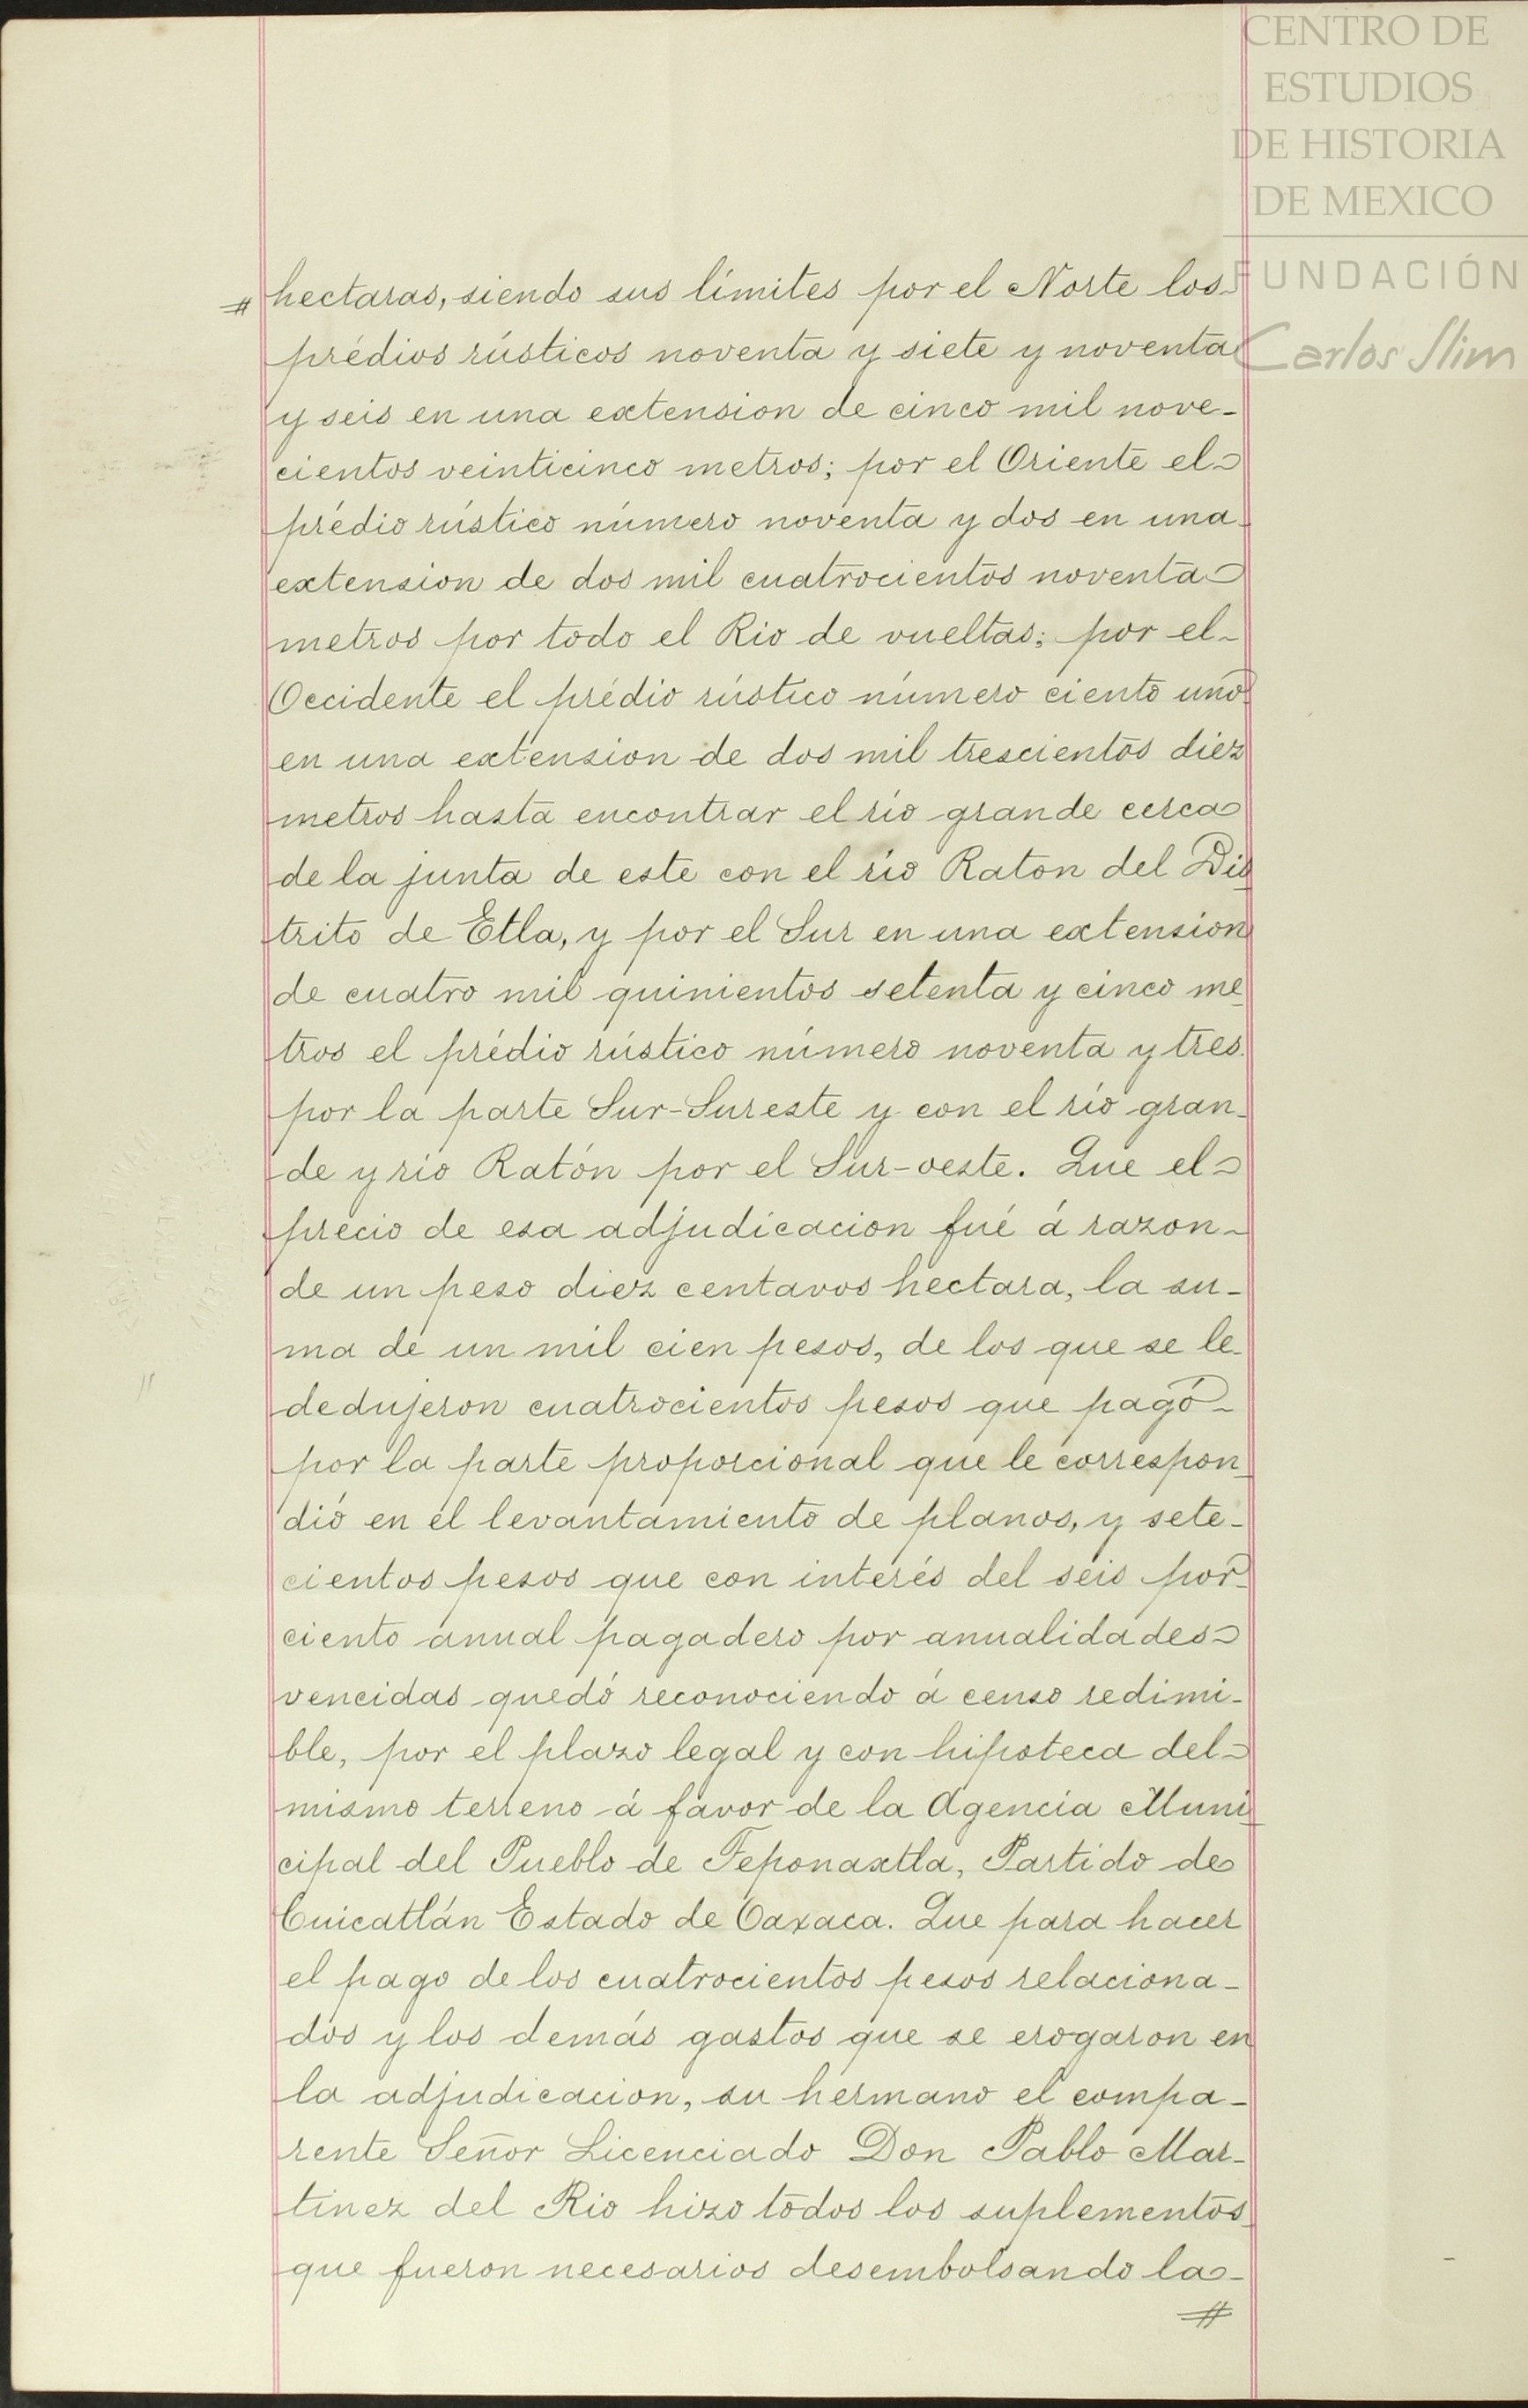 CENTRO DE
ESTUDIOS
DE HISTORIA
DE MEXICO
FUNDACIÓN
Carlos Slim
hectaras, siendo sus límites por el Norte los
prédios rústicos noventa y siete y noventa
y seis en una extension de cinco mil nove-
cientos veinticinco metros; por el Oriente el
prédio rústico número noventa y dos en una
extension de dos mil cuatrocientos noventa
metros por todo el Rio de vueltas; por el
Occidente el prédio rústico número ciento uno
en una extension de dos mil trescientos diez
metros hasta encontrar el río grande cerca
de la junta de este con el río Raton del Dis
trito de Etla, y por el Sur en una extension
de cuatro mil quinientos setenta y cinco me
tros el prédio rústico número noventa y tres
por la parte Sur-Sureste y con el río gran-
de y rio Ratón por el Sur-oeste. Que el
precio de esa adjudicacion fué á razon
de un peso diez centavos hectara, la su-
ma de un mil cien pesos, de los que se le
dedujeron cuatrocientos pesos que pagó
por la parte proporcional que le correspon
dió en el levantamiento de planos, y sete-
cientos pesos que con interés del seis por
ciento anual pagadero por anualidades
vencidas quedó reconociendo á censo redimi-
ble, por el plazo legal y con hipoteca del
mismo terreno á favor de la Agencia Muni
cipal del Pueblo de Teponaxtla, Partido de
Cuicatlán Estado de Oaxaca. Que para hacer
el pago de los cuatrocientos pesos relaciona-
dos y los demás gastos que se erogaron en
la adjudicacion, su hermano el compa-
rente Señor Licenciado Don Pablo Mar-
tinez del Rio hizo todos los suplementos
que fueron necesarios desembolsando la